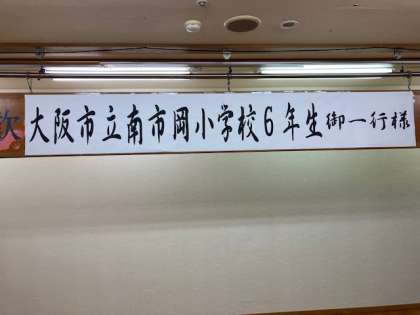 歓 大阪市立南市岡小学校6年生御一行様